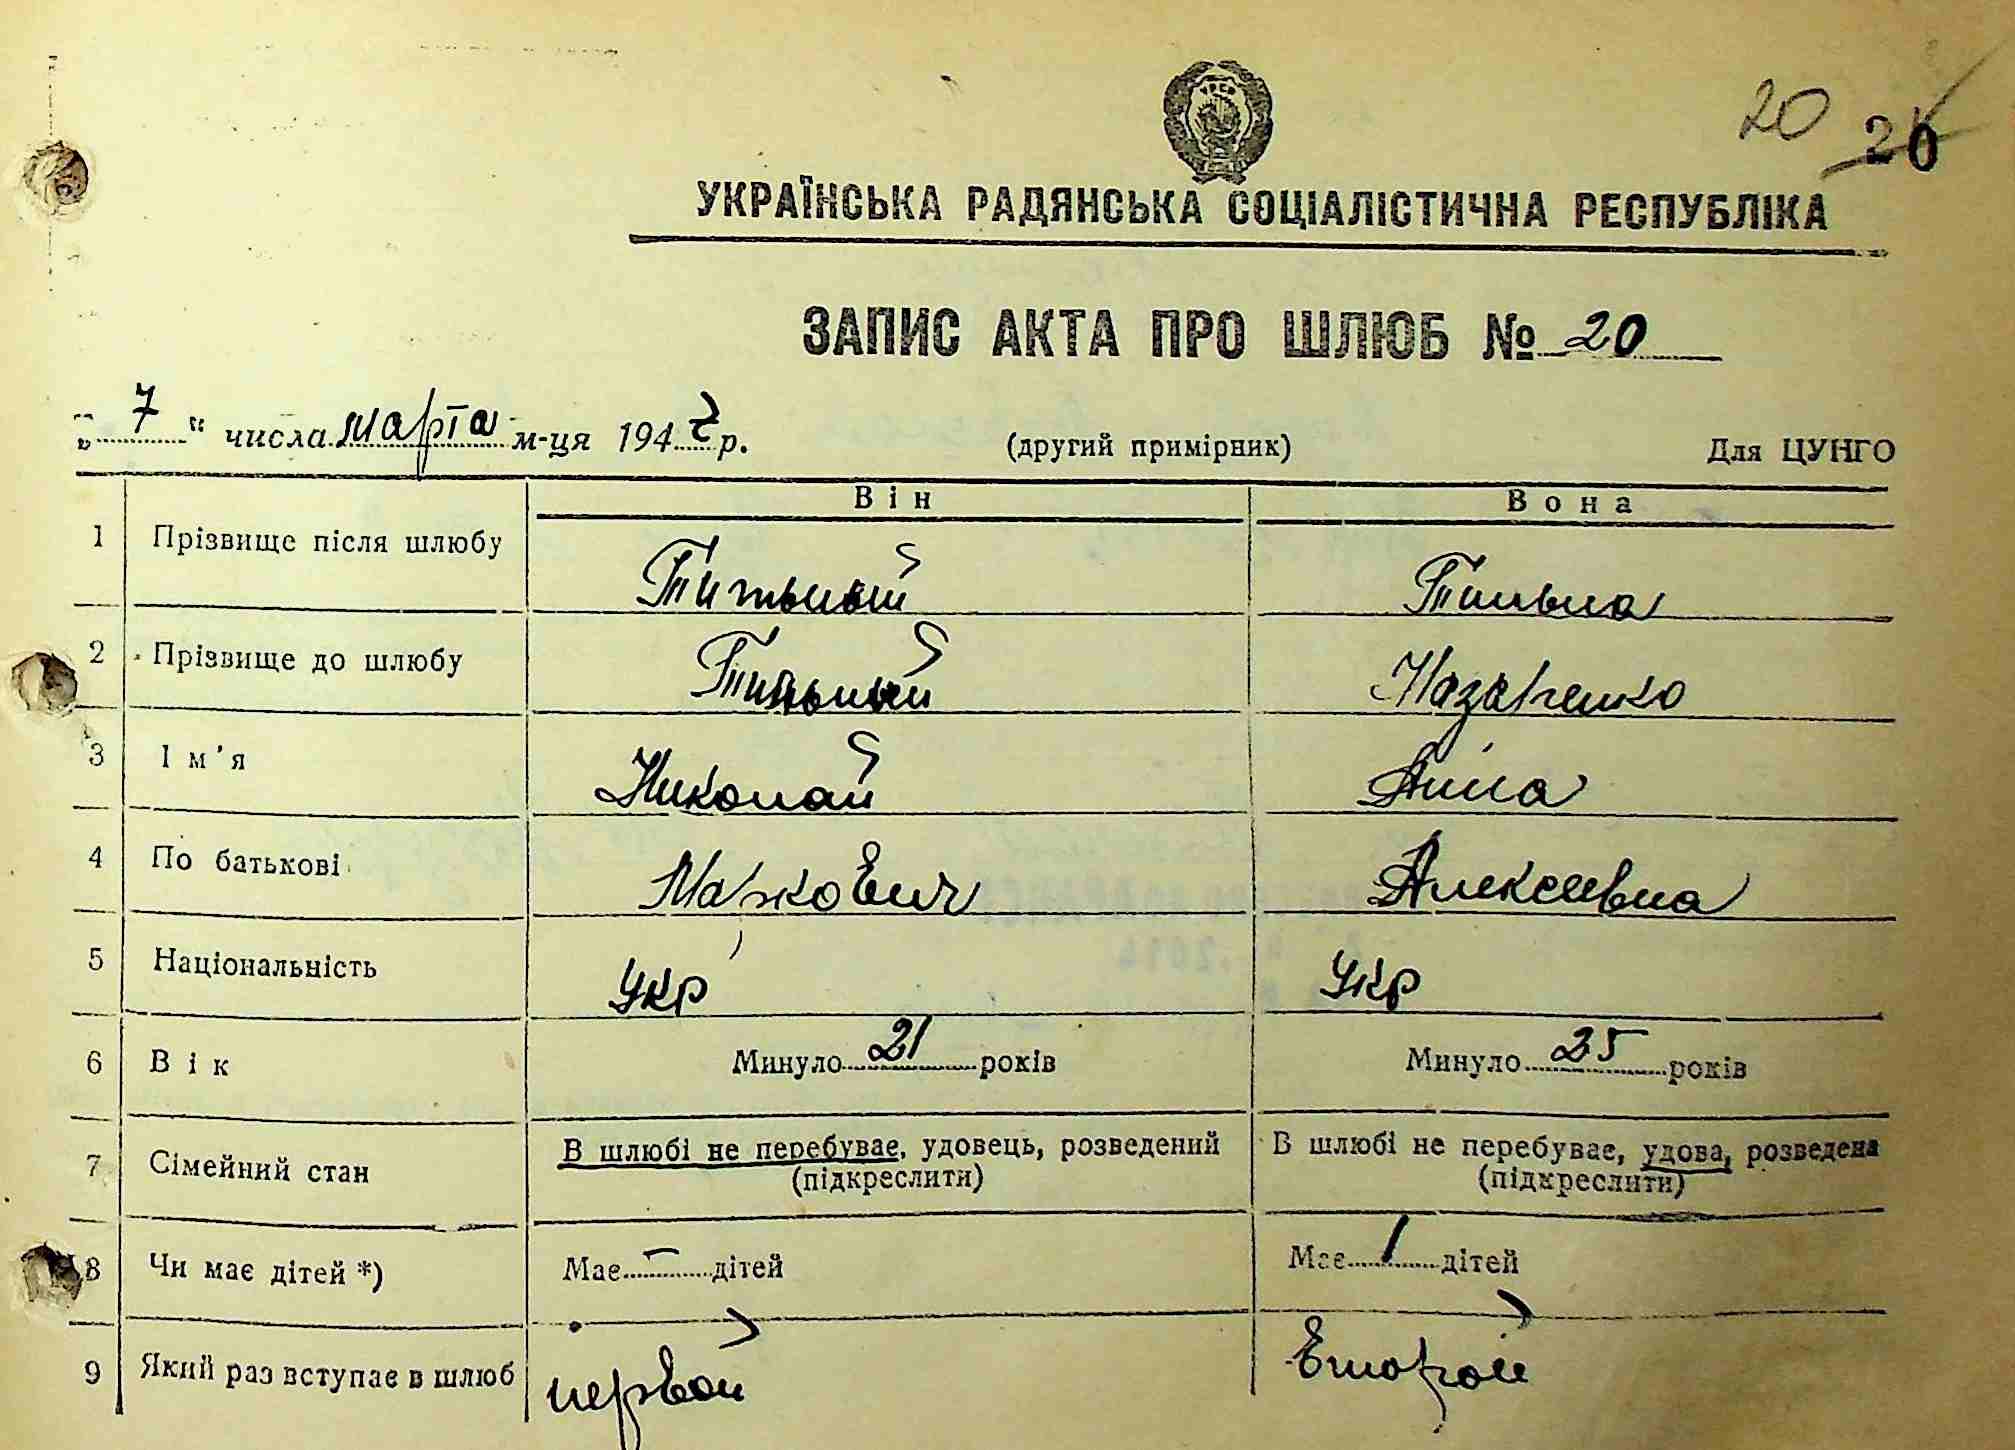 20 20
УРСР
УКРАЇНСЬКА РАДЯНСЬКА СОЦІАЛІСТИЧНА РЕСПУБЛІКА
ЗАПИС АКТА ПРО ШЛЮБ № 20
„ 7 “ числа марта м-ця 1947 р. (другий примірник) Для ЦУНГО
Він Вона
1 Прізвище після шлюбу
2 Прізвище до шлюбу Назаренко
3 Ім'я Николай Анна
4 По батькові Маркович Алексеевна
5 Національність Укр Укр
6 Вік Минуло 21 років Минуло 25 років
7 Сімейний стан В шлюбі не перебуває, удовець, розведений В шлюбі не перебуває, удова, розведена
(підкреслити) (підкреслити)
8 Чи має дітей *) Має – дітей Має 1 дітей
9 Який раз вступає в шлюб первой второй